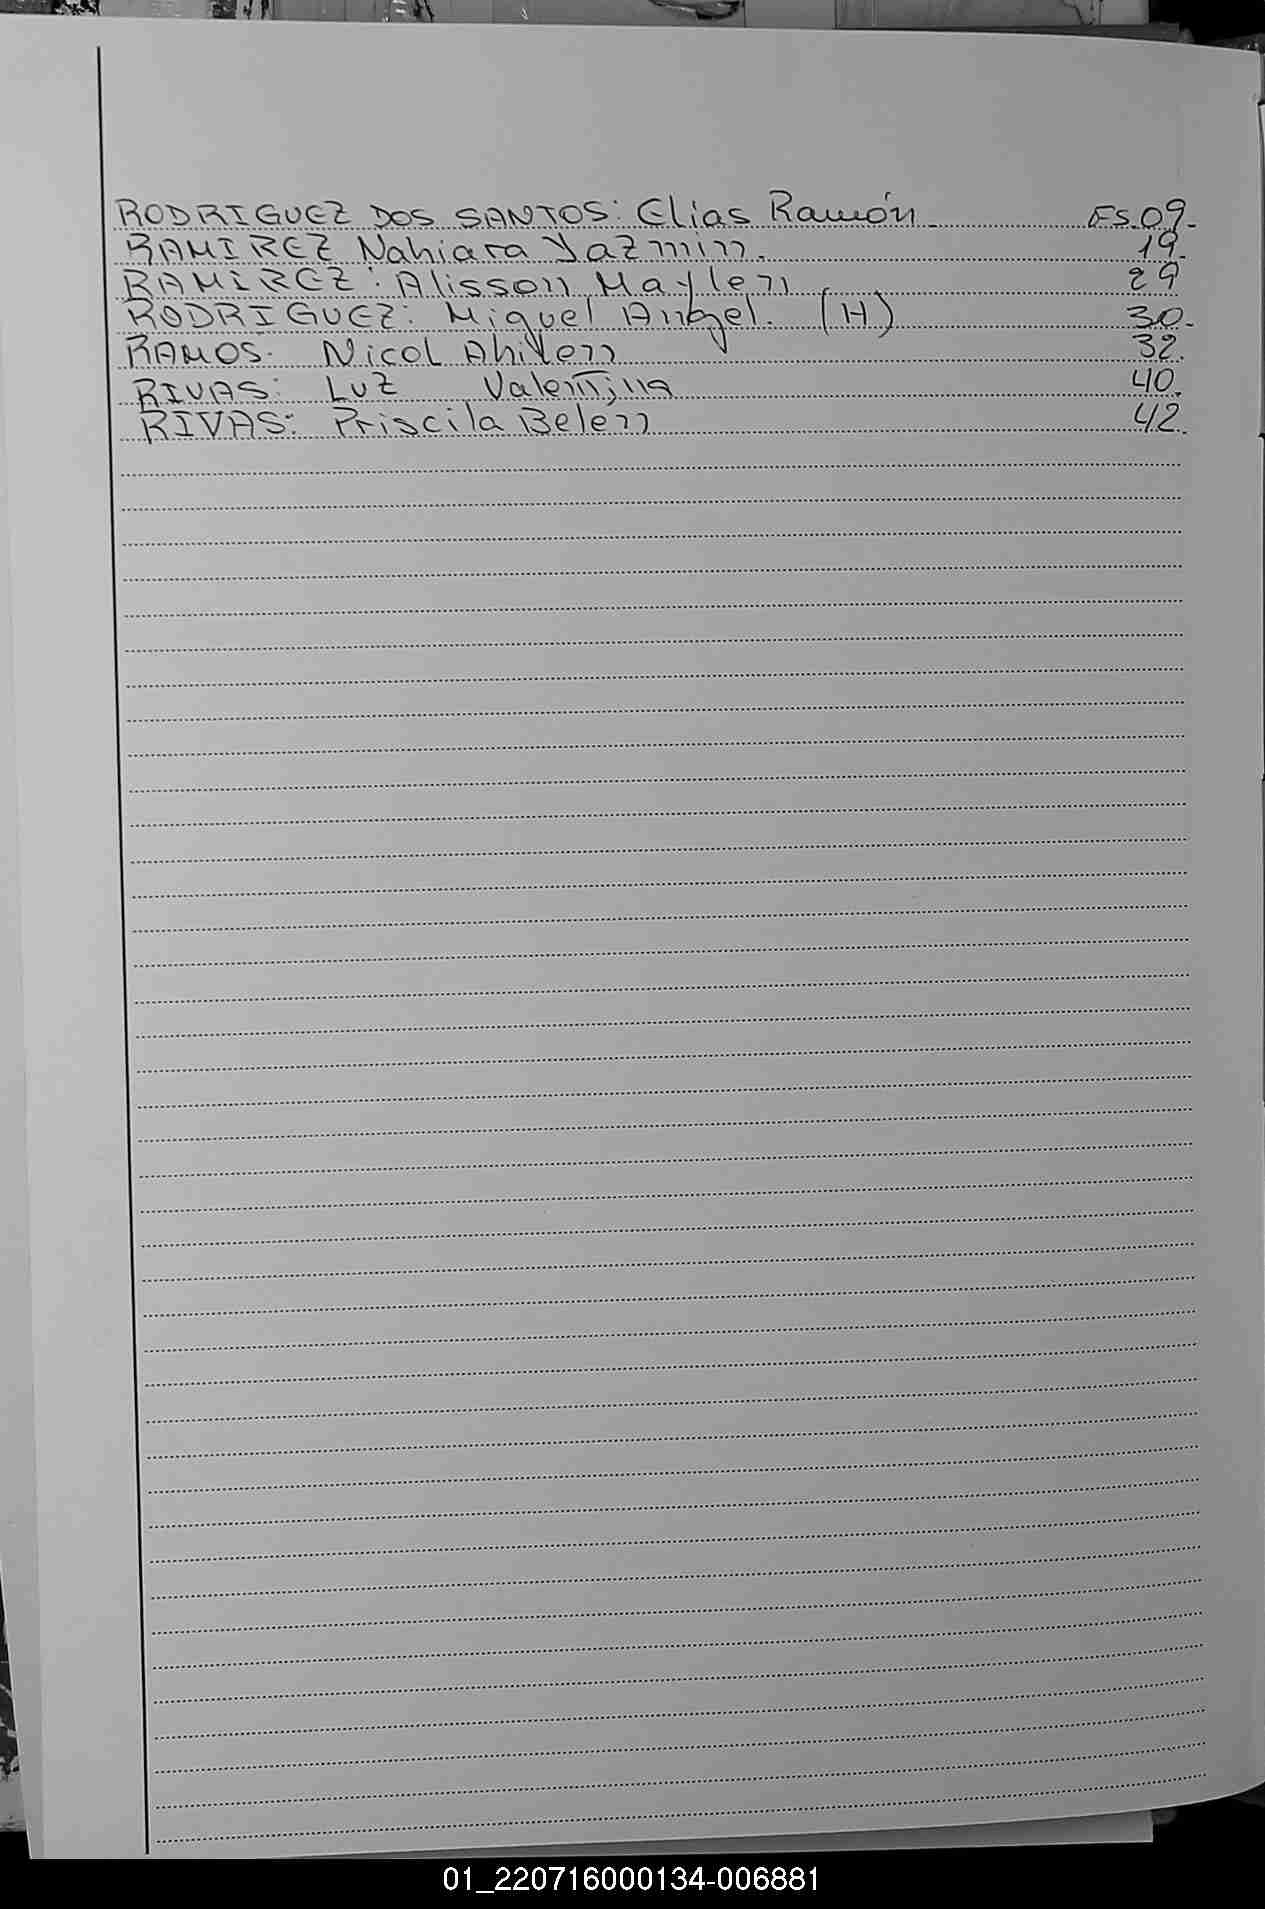 RODRIGUEZ DOS SANTOS: Elias Ramón. Fs. 09.
RAMIREZ Nahiara Yazmin. 19.
RAMIREZ: Alisson Maylen 29
RODRIGUEZ: Miguel Angel. (H) 30.
RAMOS. Nicol Ahilen 32.
RIVAS: Luz Valentina 40.
RIVAS: Priscila Belen 42.
01_220716000134-006881